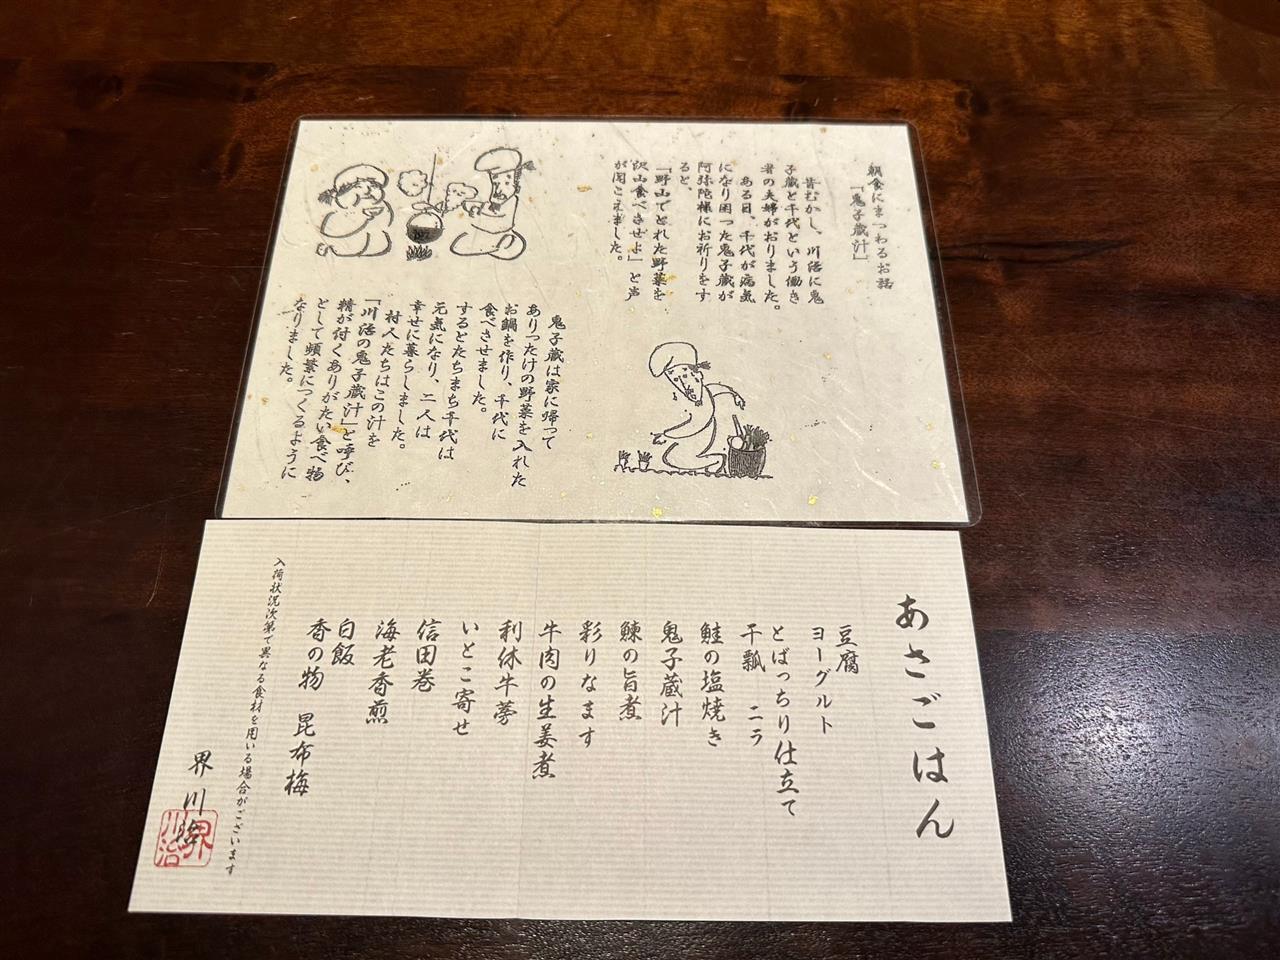 朝食にまつわるお話
「鬼子蔵汁」
昔むかし、川治に鬼
子蔵と千代という働き
者の夫婦がおりました。
ある日、千代が病気
になり困った鬼子蔵が
阿弥陀様にお祈りをす
ると、
「野山でとれた野菜を
沢山食べさせよ」と声
が聞こえました。
鬼子蔵は家に帰って
ありったけの野菜を入れた
お鍋を作り、千代に
食べさせました。
するとたちまち千代は
元気になり、二人は
幸せに暮らしました。
村人たちはこの汁を
「川治の鬼子蔵汁」と呼び、
精が付くありがたい食べ物
として頻繁につくるように
なりました。
あさごはん
豆腐
ヨーグルト
とばっちり仕立て
干瓢 ニラ
鮭の塩焼き
鬼子蔵汁
鰊の旨煮
彩りなます
牛肉の生姜煮
利休牛蒡
いとこ寄せ
信田巻
海老香煎
白飯
香の物 昆布梅
入荷状況次第で異なる食材を用いる場合がございます
界 川治
界川治